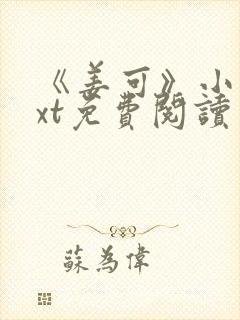 《姜可》小
xt免費閱讀
蘇為偉